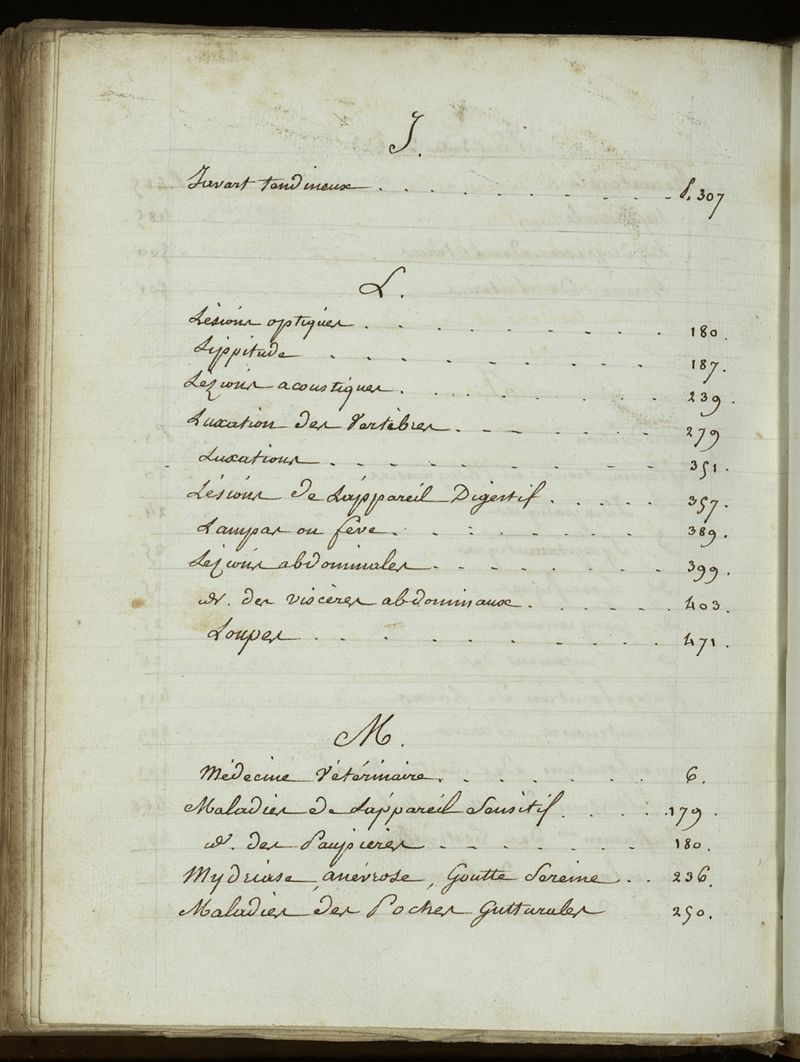 J.
Javart tendineux . . . . . . . . . . . p. 307
L.
Lésions optiques . . . . . . . . . . 180.
Lippitude . . . . . . . . . . 187.
Lézions acoustiques . . . . . . . . . 239.
Luxation des Vertèbres . . . . . . . 279
Luxations . . . . . . . . . . 351.
Lésions de L'appareil Digestif . . . . . 357.
Lampas ou fève . . . . . . . . 389.
Lézions abdominales . . . . . . . . 399.
id. des viscères abdominaux . . . . . 403.
Loupes . . . . . . . . . . 471.
M.
Médecine Vétérinaire . . . . . . . 6.
Maladies de L'appareil Sensitif . . . . 179.
id. des Paupières . . . . . . . 180.
Mydriase, anévrose, Goutte Sereine . . 236.
Maladies des Poches Gutturales 250.